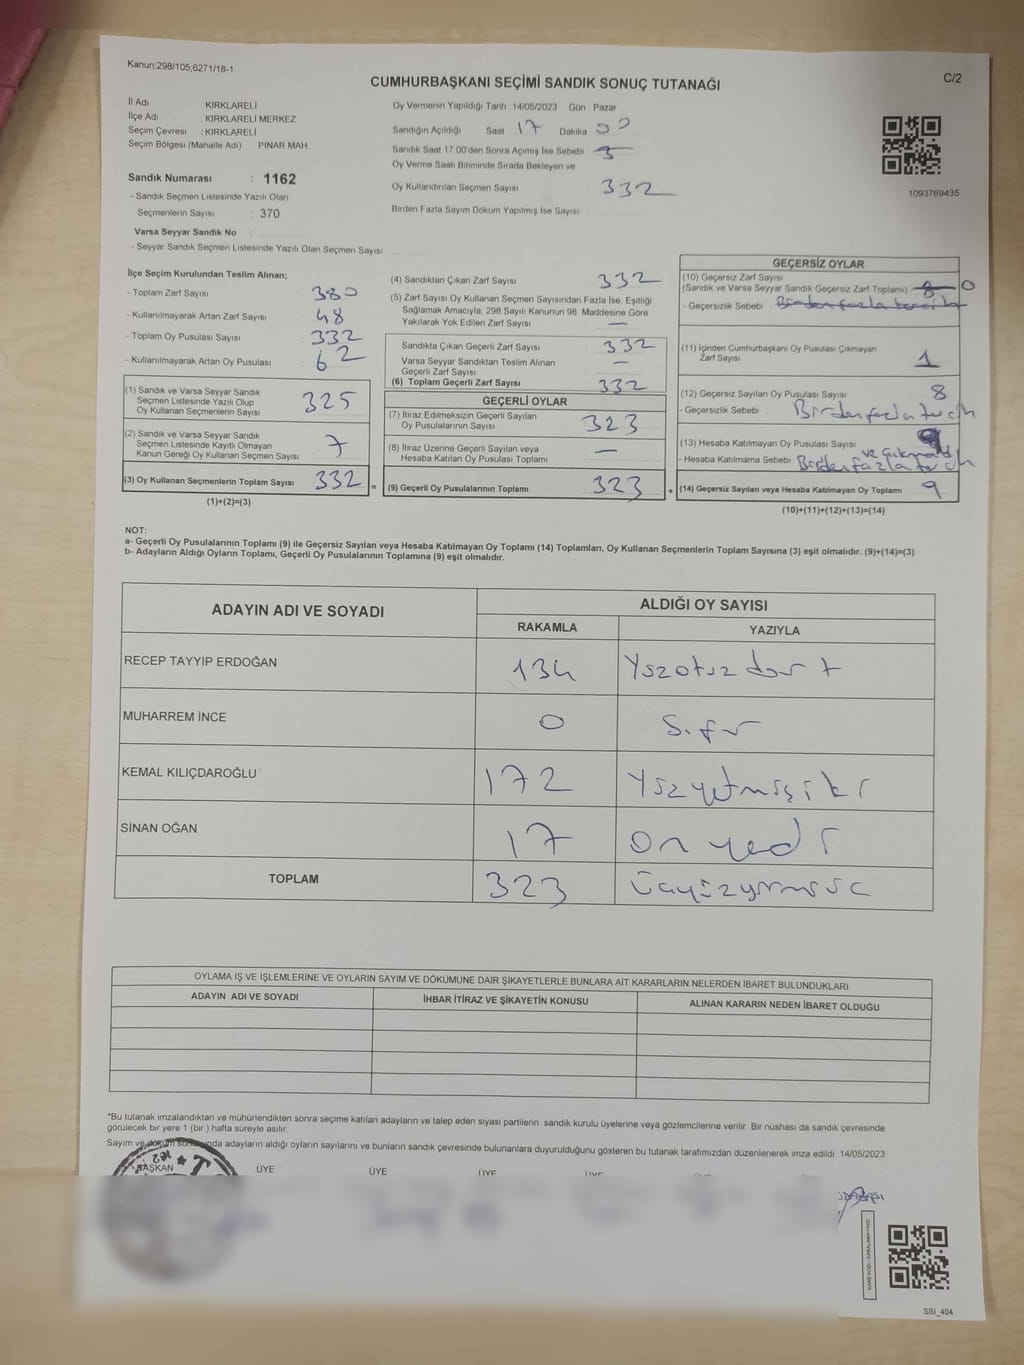 Kanun,298/105,6271/18-1
C/2
CUMHURBAŞKANI SEÇİMİ SANDIK SONUÇ TUTANAĞI
İl Adı KIRKLARELİ
İlçe Adı : KIRKLARELİ MERKEZ
Seçim Çevresi : KIRKLARELİ
Seçim Bölgesi (Mahalle Adı) PINAR MAH.
Sandık Numarası : 1162
- Sandık Seçmen Listesinde Yazılı Olan
Seçmenlerin Sayısı : 370
Varsa Seyyar Sandık No :
- Seyyar Sandık Seçmen Listesinde Yazılı Olan Seçmen Sayısı
Oy Vermenin Yapıldığı Tarih 14/05/2023 Gün : Pazar
Sandığın Açıldığı Saat 17 Dakika 00
Sandık Saat 17.00'den Sonra Açılmış İse Sebebi
Oy Verme Saati Bitiminde Sırada Bekleyen ve
Oy Kullandırılan Seçmen Sayısı 332
Birden Fazla Sayım Döküm Yapılmış İse Sayısı
1093769435
İlçe Seçim Kurulundan Teslim Alınan;
- Toplam Zarf Sayısı 380
- Kullanılmayarak Artan Zarf Sayısı 48
- Toplam Oy Pusulası Sayısı 332
- Kullanılmayarak Artan Oy Pusulası 62
(1) Sandık ve Varsa Seyyar Sandık
Seçmen Listesinde Yazılı Olup
Oy Kullanan Seçmenlerin Sayısı 325
(2) Sandık ve Varsa Seyyar Sandık
Seçmen Listesinde Kayıtlı Olmayan
Kanun Gereği Oy Kullanan Seçmen Sayısı 7
(3) Oy Kullanan Seçmenlerin Toplam Sayısı 332
(1)+(2)=(3)
=
(4) Sandıktan Çıkan Zarf Sayısı 332
(5) Zarf Sayısı Oy Kullanan Seçmen Sayısından Fazla İse, Eşitliği
Sağlamak Amacıyla, 298 Sayılı Kanunun 98. Maddesine Göre
Yakılarak Yok Edilen Zarf Sayısı —
Sandıkta Çıkan Geçerli Zarf Sayısı 332
Varsa Seyyar Sandıktan Teslim Alınan
Geçerli Zarf Sayısı —
(6) Toplam Geçerli Zarf Sayısı 332
GEÇERLİ OYLAR
(7) İtiraz Edilmeksizin Geçerli Sayılan
Oy Pusulalarının Sayısı 323
(8) İtiraz Üzerine Geçerli Sayılan veya
Hesaba Katılan Oy Pusulası Toplamı —
(9) Geçerli Oy Pusulalarının Toplamı 323
+
GEÇERSİZ OYLAR
(10) Geçersiz Zarf Sayısı
(Sandık ve Varsa Seyyar Sandık Geçersiz Zarf Toplamı) 8 0
- Geçersizlik Sebebi Birden fazla tercih
(11) İçinden Cumhurbaşkanı Oy Pusulası Çıkmayan
Zarf Sayısı 1
(12) Geçersiz Sayılan Oy Pusulası Sayısı 8
- Geçersizlik Sebebi Birden fazla tercih
(13) Hesaba Katılmayan Oy Pusulası Sayısı
- Hesaba Katılmama Sebebi Birden fazla tercih
(14) Geçersiz Sayılan veya Hesaba Katılmayan Oy Toplamı 9
(10)+(11)+(12)+(13)=(14)
NOT:
a- Geçerli Oy Pusulalarının Toplamı (9) ile Geçersiz Sayılan veya Hesaba Katılmayan Oy Toplamı (14) Toplamları, Oy Kullanan Seçmenlerin Toplam Sayısına (3) eşit olmalıdır. (9)+(14)=(3)
b- Adayların Aldığı Oyların Toplamı, Geçerli Oy Pusulalarının Toplamına (9) eşit olmalıdır.
ADAYIN ADI VE SOYADI
ALDIĞI OY SAYISI
RAKAMLA YAZIYLA
RECEP TAYYİP ERDOĞAN 134 Yüzotuzdört
MUHARREM İNCE 0 Sıfır
KEMAL KILIÇDAROĞLU 172 Yüzyetmişiki
SİNAN OĞAN 17 Onyedi
TOPLAM 323 Üçyüzyirmiüç
OYLAMA İŞ VE İŞLEMLERİNE VE OYLARIN SAYIM VE DÖKÜMÜNE DAİR ŞİKAYETLERLE BUNLARA AİT KARARLARIN NELERDEN İBARET BULUNDUKLARI
ADAYIN ADI VE SOYADI İHBAR İTİRAZ VE ŞİKAYETİN KONUSU ALINAN KARARIN NEDEN İBARET OLDUĞU
*Bu tutanak imzalandıktan ve mühürlendikten sonra seçime katılan adayların ve talep eden siyasi partilerin sandık kurulu üyelerine veya gözlemcilerine verilir. Bir nüshası da sandık çevresinde
görülecek bir yere 1 (bir ) hafta süreyle asılır.
Sayım ve döküm sonunda adayların aldığı oyların sayılarını ve bunların sandık çevresinde bulunanlara duyurulduğunu gösteren bu tutanak tarafımızdan düzenlenerek imza edildi. 14/05/2023
BAŞKAN ÜYE ÜYE ÜYE ÜYE ÜYE
SSI_404